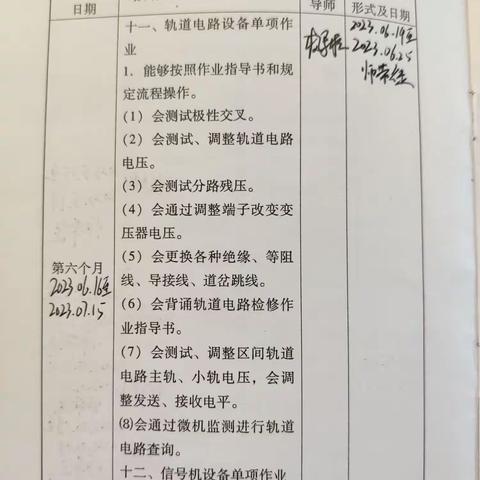 日期
导师
形式及日期
十一、轨道电路设备单项作
业
1．能够按照作业指导书和规
定流程操作。
（1）会测试极性交叉。
（2）会测试、调整轨道电路
电压。
（3）会测试分路残压。
（4）会通过调整端子改变变
压器电压。
（5）会更换各种绝缘、等阻
线、导接线、道岔跳线。
（6）会背诵轨道电路检修作
业指导书。
（7）会测试、调整区间轨道
电路主轨、小轨电压，会调
整发送、接收电平。
⑻会通过微机监测进行轨道
电路查询。
十二、信号机设备单项作业
第六个月
2023.06.16至
2023.07.15
2023.06.19至
2023.06.25
师带徒